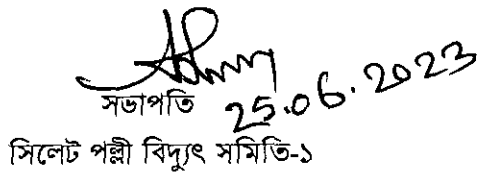 সভাপতি 25.06.2023
সিলেট পল্লী বিদ্যুৎ সমিতি-১